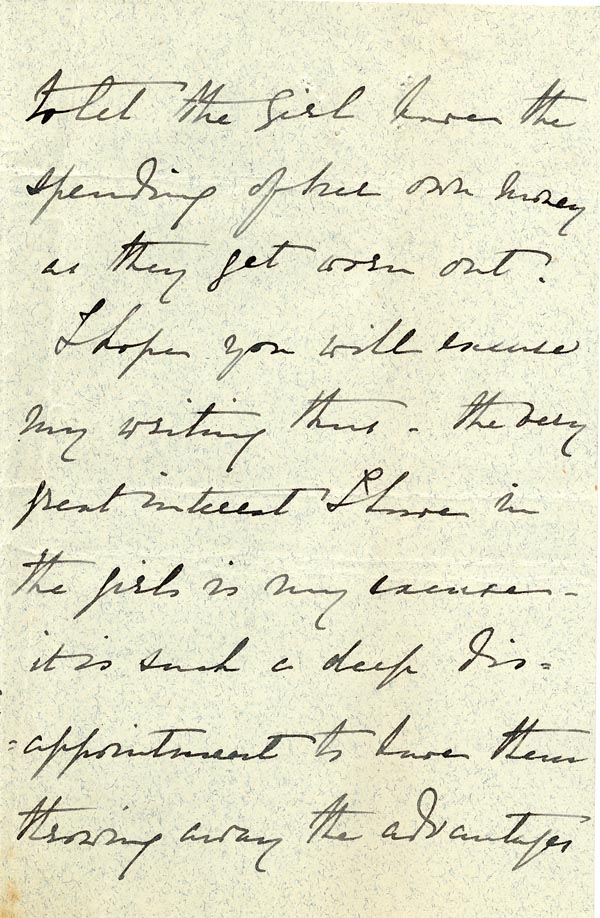 to let the girl have the
spending of her own money
as they get worn out.
I hope you will excuse
my writing thus - the very
great interest I have in
the girls is my excuse -
it is such a deep dis=
=appointment to have them
throwing away the advantages